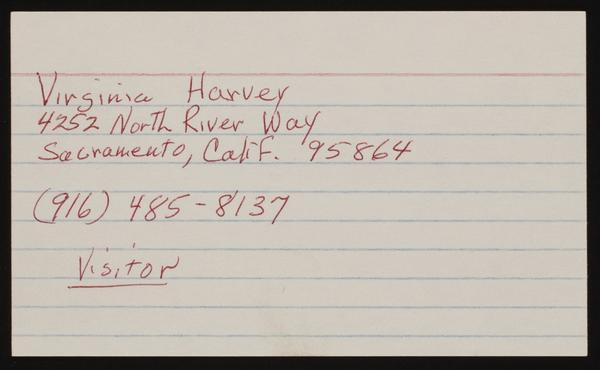 Virginia Harvey
4252 North River Way
Sacramento, Calif. 95864
(916) 485-8137
Visitor